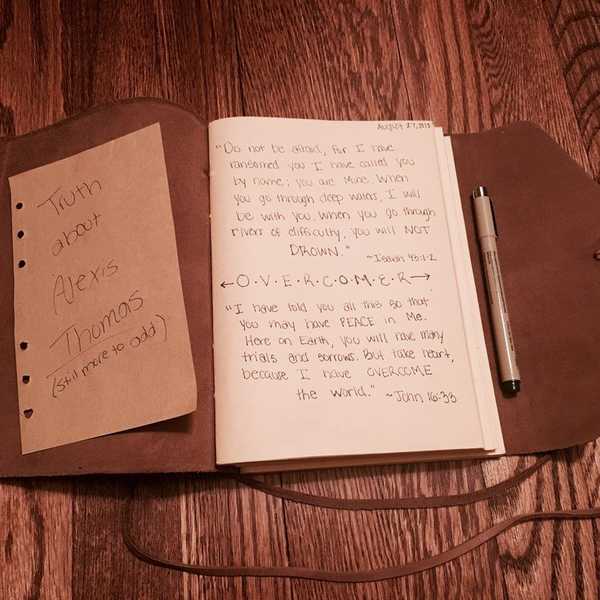 Truth
about
Alexis
Thomas
(still more to add)
August 27, 2015
"Do not be afraid, for I have
ransomed you I have called you
by name; you are Mine. When
you go through deep waters, I will
be with you. When you go through
rivers of difficulty, you will NOT
DROWN."
~Isaiah 43:1-2
←O·V·E·R·C·O·M·E·R→
"I have told you all this so that
you may have PEACE in Me.
Here on Earth, you will have many
trials and sorrows. But take heart,
because I have OVERCOME
the world." ~John 16:33